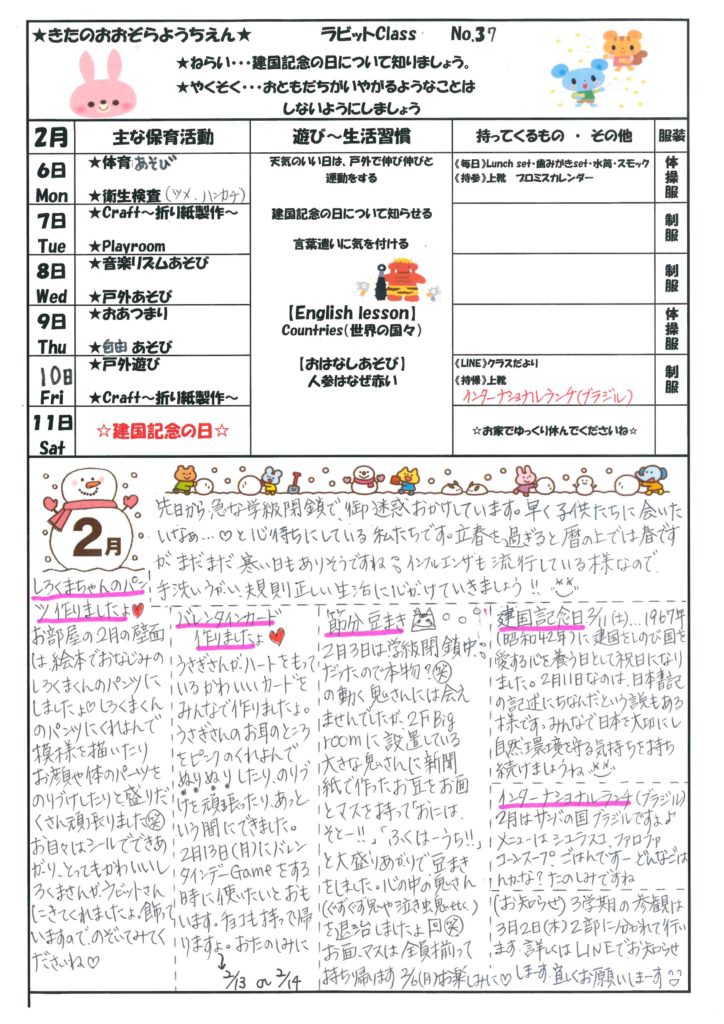 ★きたのおおぞらようちえん★ ラビットClass No.37
★ねらい・・・建国記念の日について知りましょう。
★やくそく・・・おともだちがいやがるようなことは
しないようにしましょう
2月 主な保育活動 遊び～生活習慣 持ってくるもの ・ その他 服装
6日 Mon
★体育あそび
★衛生検査(ツメ、ハンカチ)
天気のいい日は、戸外で伸び伸びと
運動をする
《毎日》Lunch set・歯みがきset・水筒・スモック
《持参》上靴 プロミスカレンダー
体操服
7日 Tue
★Craft～折り紙製作～
★Playroom
建国記念の日について知らせる
言葉遣いに気を付ける
制服
8日 Wed
★音楽リズムあそび
★戸外あそび
制服
9日 Thu
★おあつまり
★自由あそび
【English lesson】
Countries(世界の国々)
体操服
10日 Fri
★戸外遊び
★Craft～折り紙製作～
【おはなしあそび】
人参はなぜ赤い
《LINE》クラスだより
《持帰》上靴
インターナショナルランチ(ブラジル)
制服
11日 Sat
☆建国記念の日☆
☆お家でゆっくり休んでくださいね☆
2月
先日から急な学級閉鎖で、御迷惑おかけしています。早く子供たちに会いた
いなぁ…♡と心待ちにしている私たちです。立春を過ぎると暦の上では春です
が、まだまだ寒い日もありそうですね。インフルエンザも流行している様なので、
手洗い、うがい、規則正しい生活に心がけていきましょう!!
しろくまちゃんのパン
ツ作りましたよ♥
お部屋の2月の壁面
は、絵本でおなじみの
しろくまくんのパンツに
しましたよ♡しろくまくん
のパンツにくれよんで
模様を描いたり
お顔や体のパーツを
のりづけしたりと盛りだ
くさん頑張りました(笑)
お目々はシールでできあ
がり、とってもかわいいし
ろくまさんがラビットさん
にきてくれましたよ。飾って
いますので、のぞいてみてく
ださいね♡
バレンタインカード
作りましたよ♥
うさぎさんがハートをもって
いるかわいいカードを
みんなで作りましたよ。
うさぎさんのお耳のところ
をピンクのくれよんで
ぬりぬりしたり、のりづ
けを頑張ったり、あっと
いう間にできました。
2月13日(月)にバレン
タインデーGameをする
時に使いたいとおも
います。チョコも持って帰
りますよ。おたのしみに
2/13 or 2/14
節分 豆まき
2月3日は学級閉鎖中
だったので本物?(笑)
の動く鬼さんには会え
ませんでしたが、2F Big
roomに設置している
大きな鬼さんに新聞
紙で作ったお豆をお面
とマスを持って「おには、
そとー!!」「ふくはーうち!!」
と大盛りあがりで豆まき
をしました。心の中の鬼さん
(ぐずぐず鬼や泣き虫鬼etc.)
を退治しましたよ(笑)
お面、マスは全員揃って
持ち帰ります 2/6(月)お楽しみに♡
建国記念日 2/11(土)…1967年
(昭和42年)に建国をしのび国を
愛する心を養う日として祝日になり
ました。2月11日なのは、日本書記
の記述にちなんだという説もある
様です。みんなで日本を大切にし
自然・環境を守る気持ちを持ち
続けましょうね
インターナショナルランチ(ブラジル)
2月はサンバの国ブラジルですよ
メニューはシュラスコ、ファロファ
コーンスープ、ごはんですー どんなごは
んかな?たのしみですね
(お知らせ)3学期の参観は
3月2日(木)2部に分かれて行い
ます。詳しくはLINEでお知らせ
します。宜しくお願いしまーす